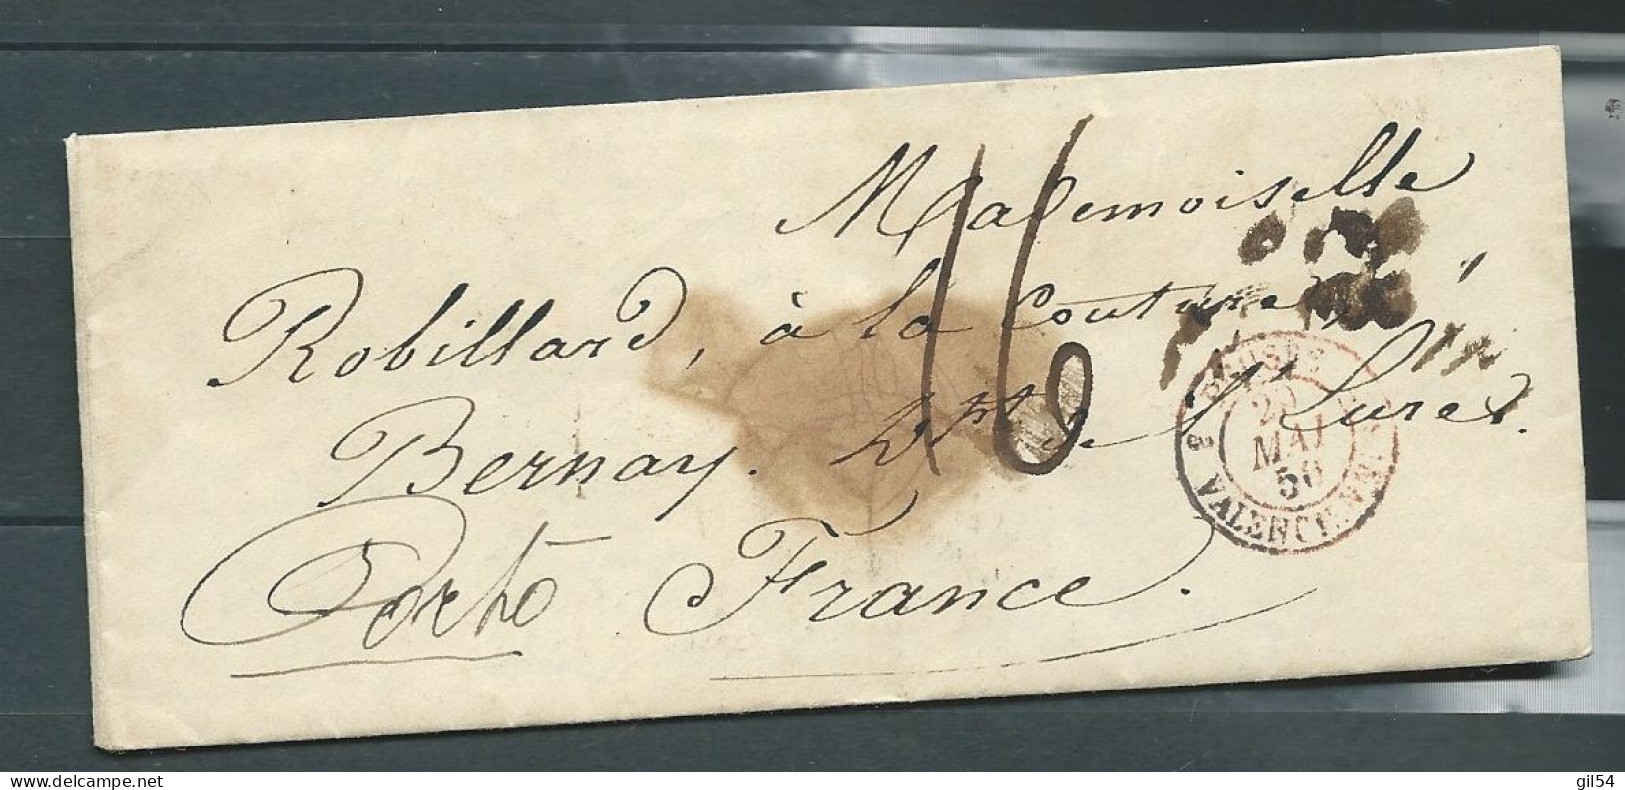 Mademoiselle
Robillard, à la Couture,
Bernay. Dpt de l'Eure.
Porto France.
16
29
MAI
50
VALENCIENNES
https://www.delcampe.net
gil54